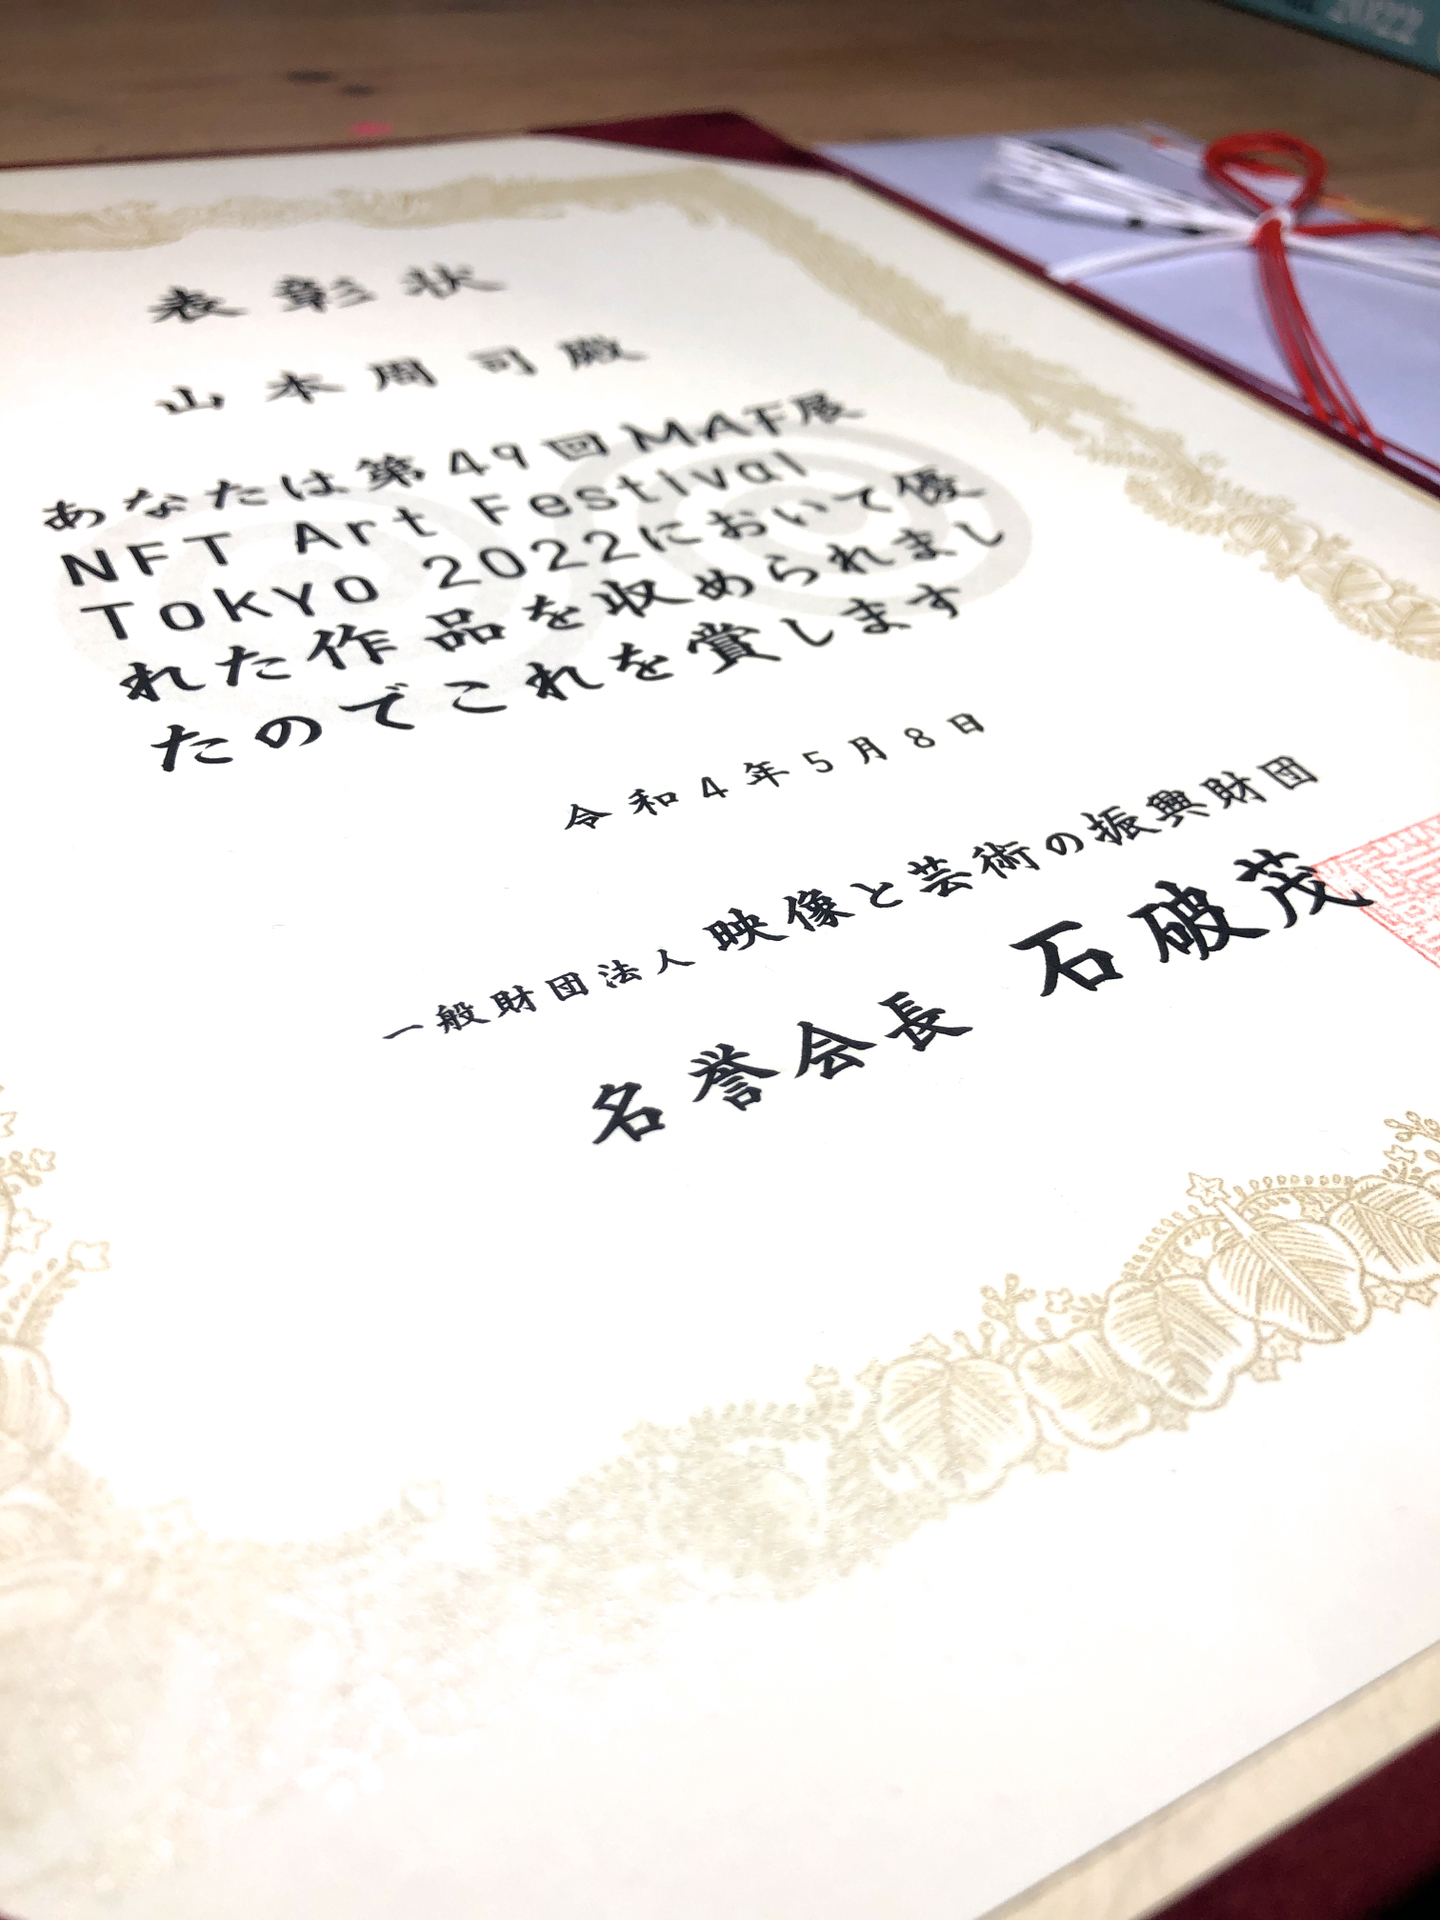 2022
表彰状
山本周司殿
あなたは第49回MAF展
NFT Art Festival
TOKYO 2022において優
れた作品を収められまし
たのでこれを賞します
令和4年5月8日
一般財団法人 映像と芸術の振興財団
名誉会長 石破茂